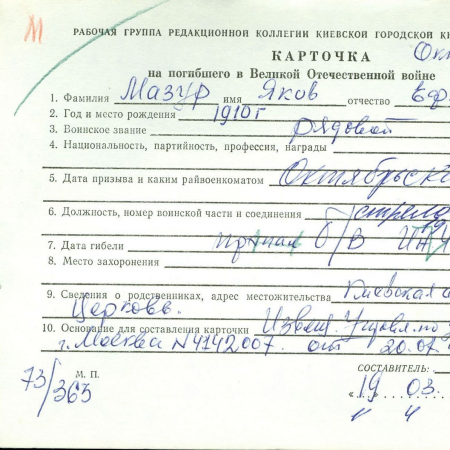 М
РАБОЧАЯ ГРУППА РЕДАКЦИОННОЙ КОЛЛЕГИИ КИЕВСКОЙ ГОРОДСКОЙ
КАРТОЧКА
на погибшего в Великой Отечественной войне
1. Фамилия Мазур имя Яков отчество
2. Год и место рождения 1910 г
3. Воинское звание рядовой
4. Национальность, партийность, профессия, награды
5. Дата призыва и каким райвоенкоматом
6. Должность, номер воинской части и соединения
7. Дата гибели б/в
8. Место захоронения
9. Сведения о родственниках, адрес местожительства Киевская
10. Основание для составления карточки
г. Москва N4142007. от 20.07
73/363
М. П.
СОСТАВИТЕЛЬ:
19 03.